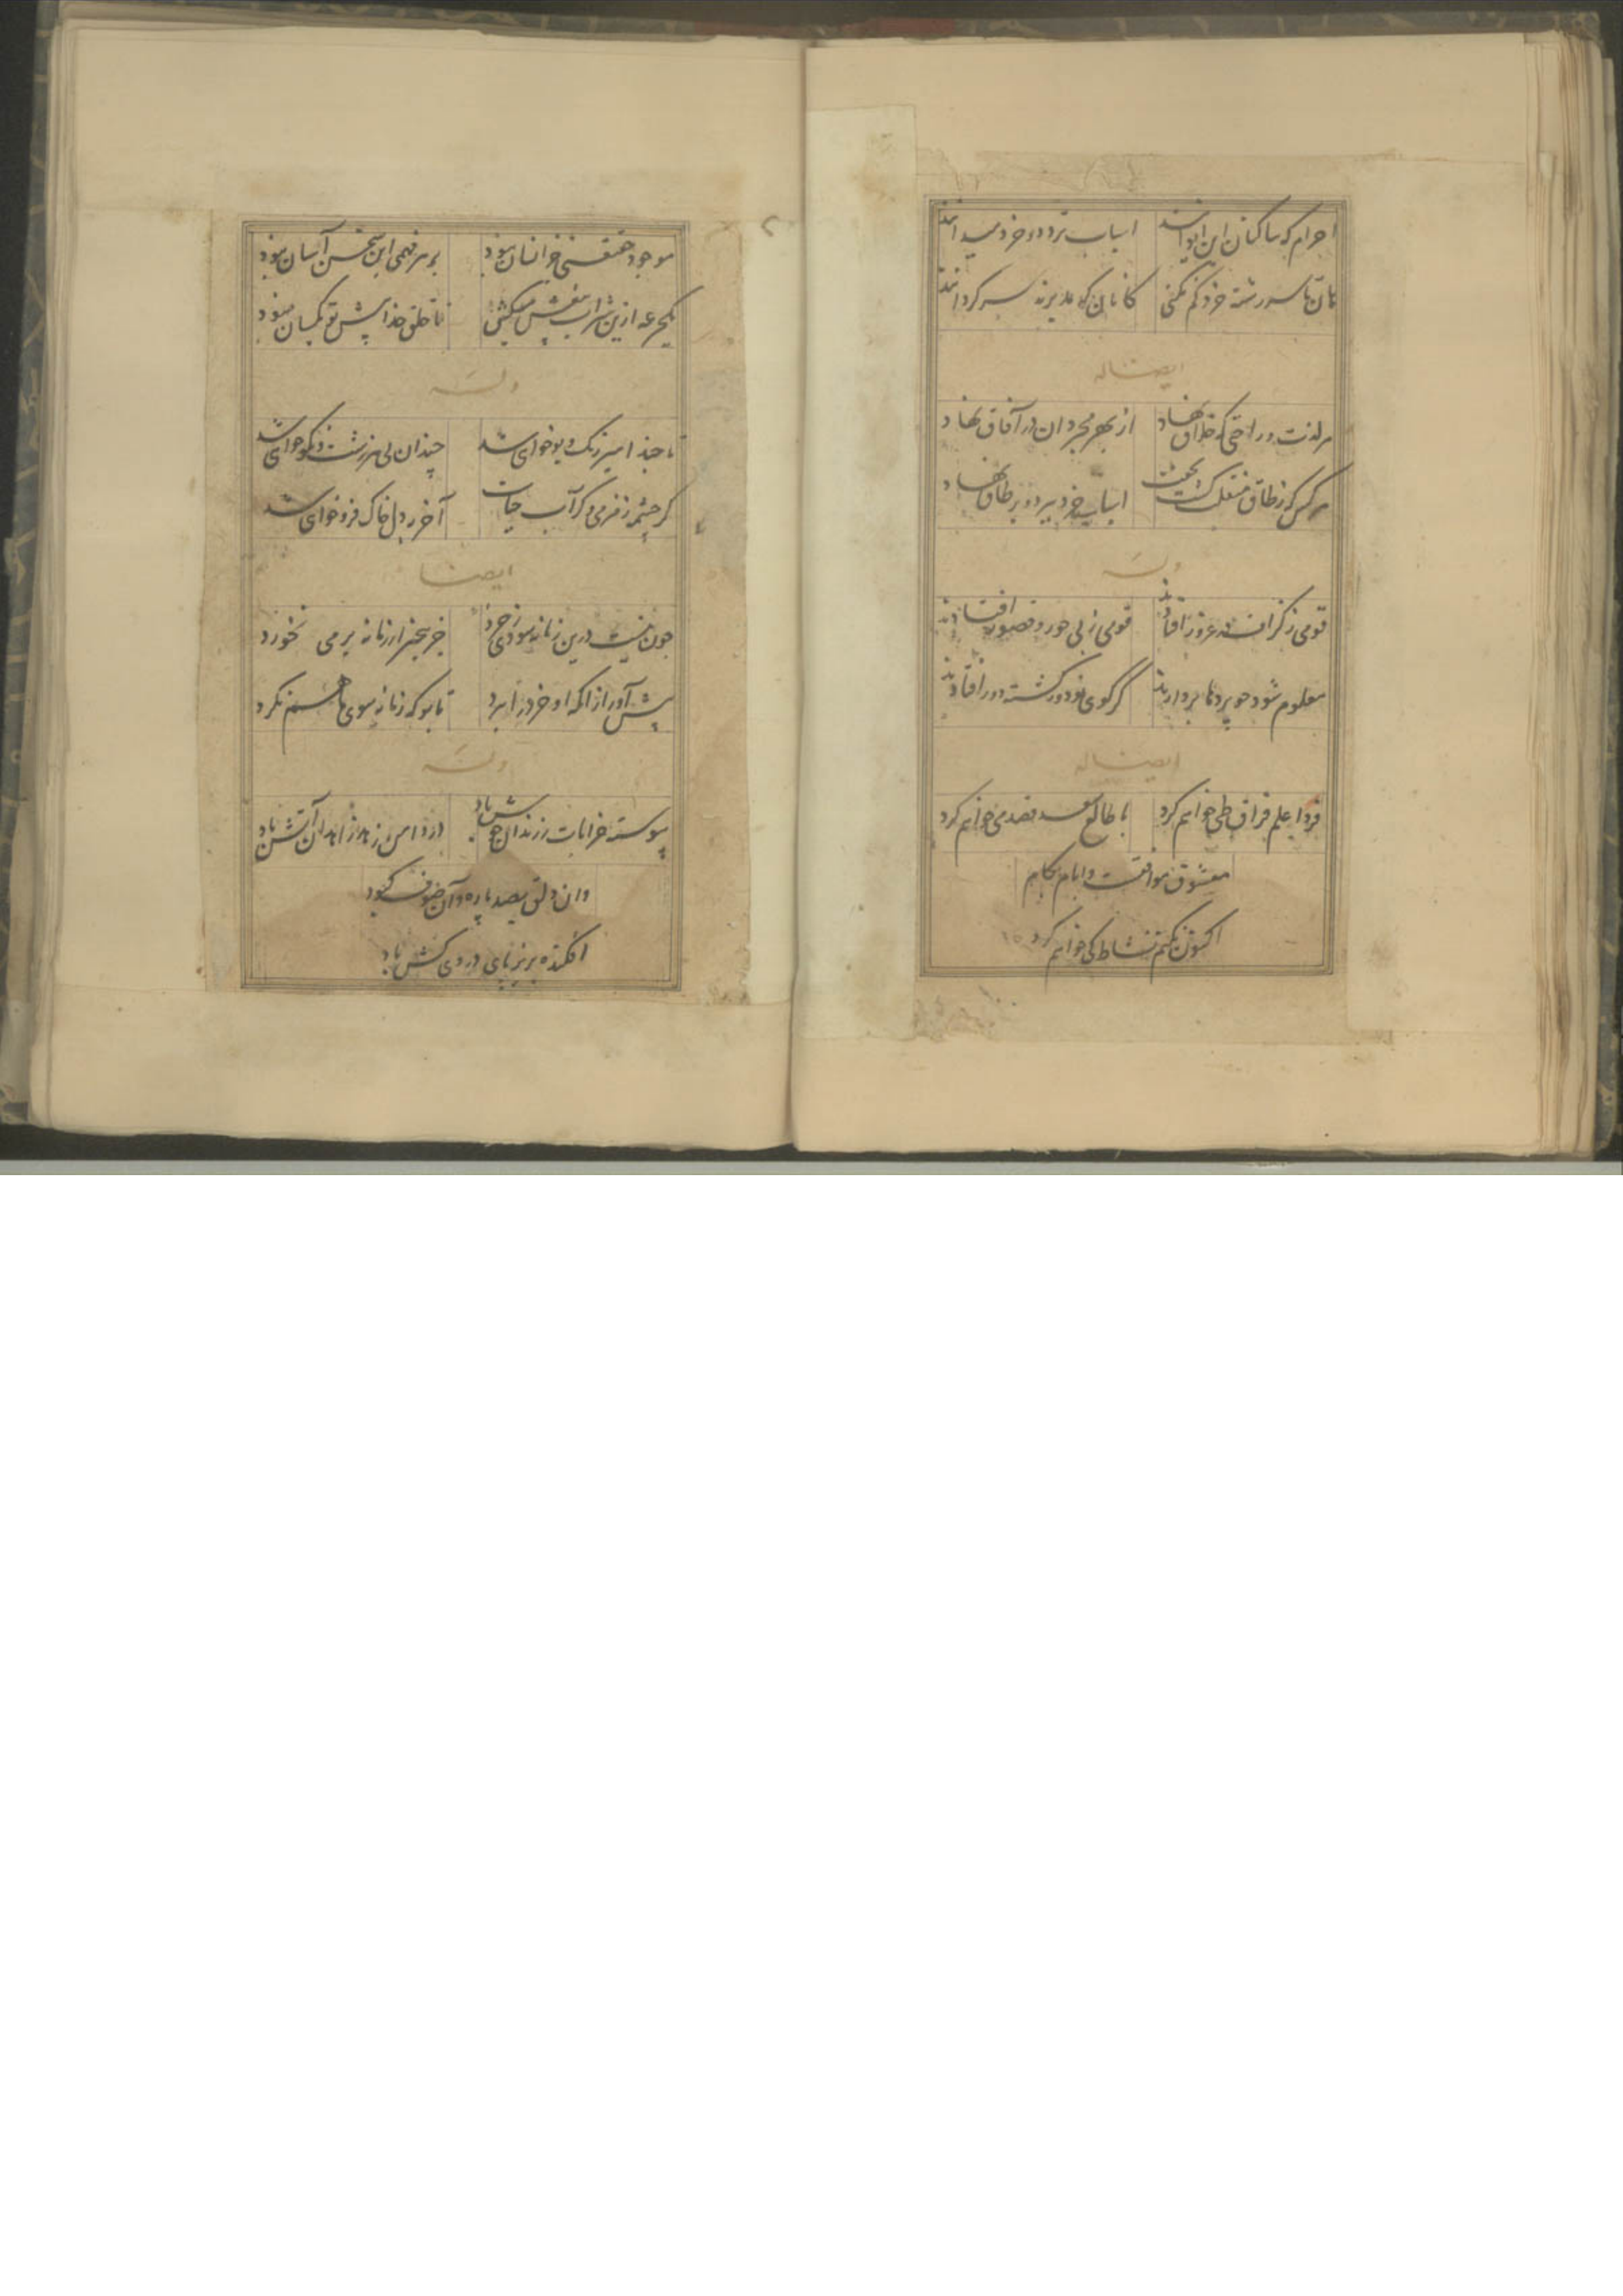 اجرام که ساکنان این ایوانند اسباب تردد خردمندانند
هان تا سر رشته خرد گم نکنی کانان که مدبرند سرگردانند
ایضا له
هر لذت و راحتی که خلاق نهاد از بهر مجردان در آفاق نهاد
هر کس که ز طاق منقلب گشت بجفت اسباب خرد ببرد و بر طاق نهاد
وله
قومی ز گزاف در غرور افتادند قومی ز پی حور و قصور افتادند
معلوم شود چو پردها بردارند کز کوی تو دور گشته دور افتادند
ایضا له
فردا علم فراق طی خواهم کرد با طالع سعد قصد می خواهم کرد
معشوق موافقست و ایام بکام
اکنون نکنم نشاط کی خواهم کرد
موجود حقیقتی جز انسان نبود بر هر فهمی این سخن آسان نبود
یکجرعه ازین شراب بیغش میکش تا خلق خدا پیش تو یکسان نبود
وله
تا چند اسیر رنگ و بو خواهی شد چندان پی هر زشت و نکو خواهی شد
گر چشمه زمزمی و گر آب حیات آخر بدل خاک فرو خواهی شد
ایضا
چون نیست درین زمانه سودی ز خرد جز بیخرد از زمانه بر می نخورد
پیش آور از آنکه او خرد را ببرد تا بو که زمانه سوی ما هم نگرد
وله
پیوسته خرابات ز رندان خوش باد در دامن زهد زاهدان آتش باد
وان دلق بصد پاره و آن صوف کبود
افکنده بزیر پای دردی کش باد